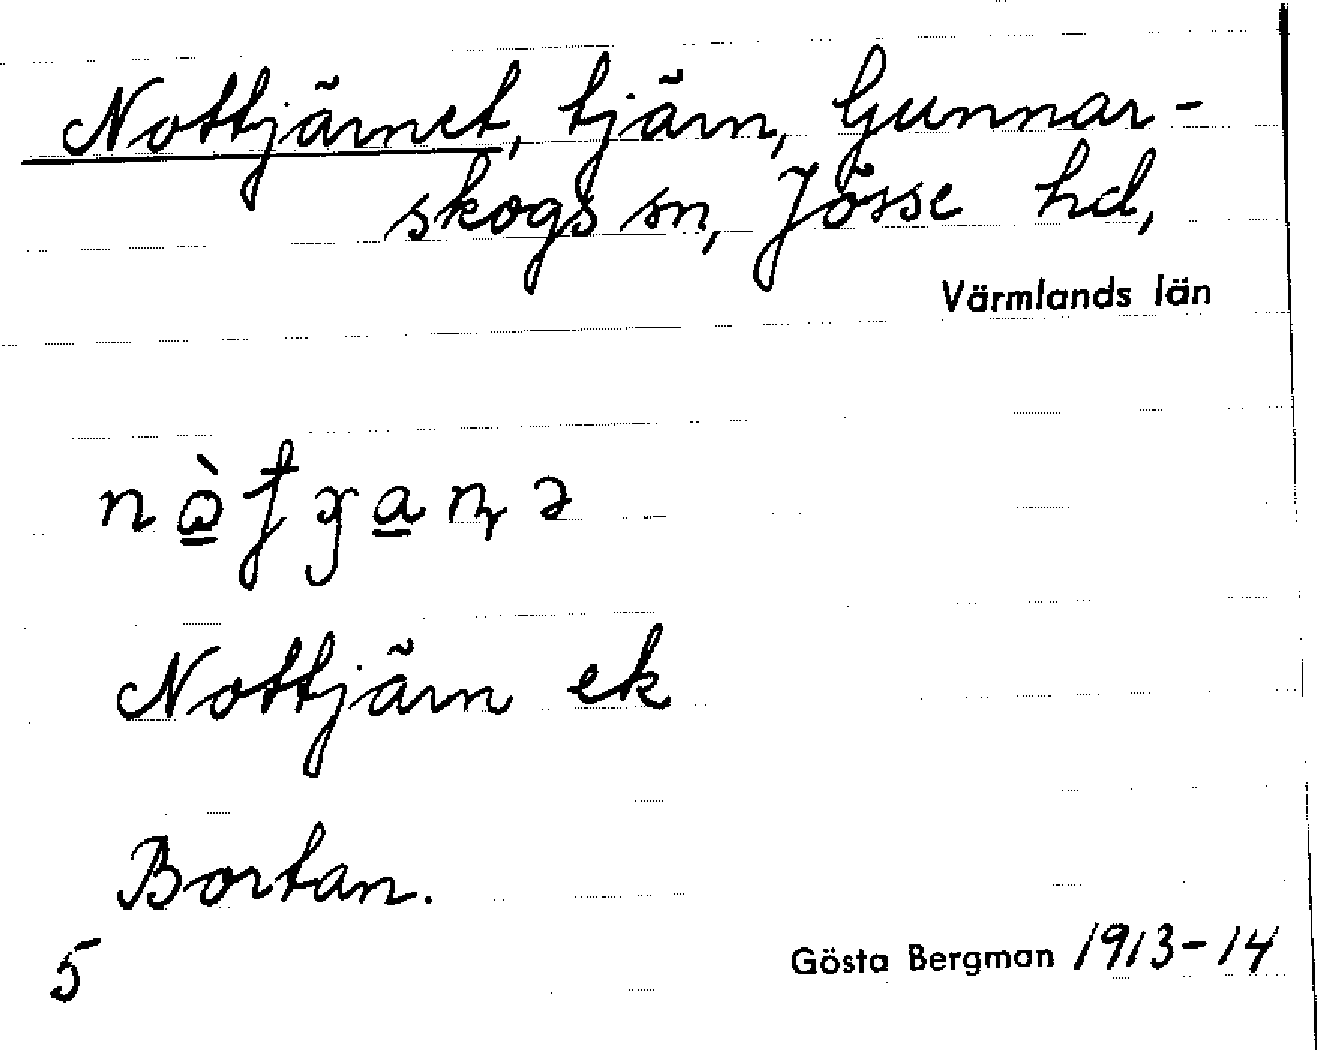 Nottjärnet, tjärn, Gunnar-
skogs sn, Jösse hd,
Värmlands län
Nottjärn ek
Bortan.
5
Gösta Bergman 1913-14